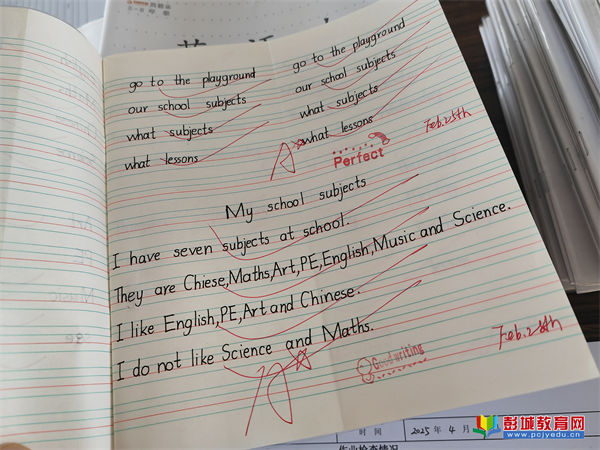 go to the playground
go to the playground
our school subjects
our school subjects
what subjects
what subjects
what lessons
what lessons
A
Perfect
Feb.25th
My school subjects
I have seven subjects at school.
They are Chiese,Maths,Art,PE,English,Music and Science.
I like English,PE,Art and Chinese.
I do not like Science and Maths.
Good writing
Feb.28th
时 间
2025 年 4 月
作业检查情况
彭城教育网
www.pcjyedu.cn